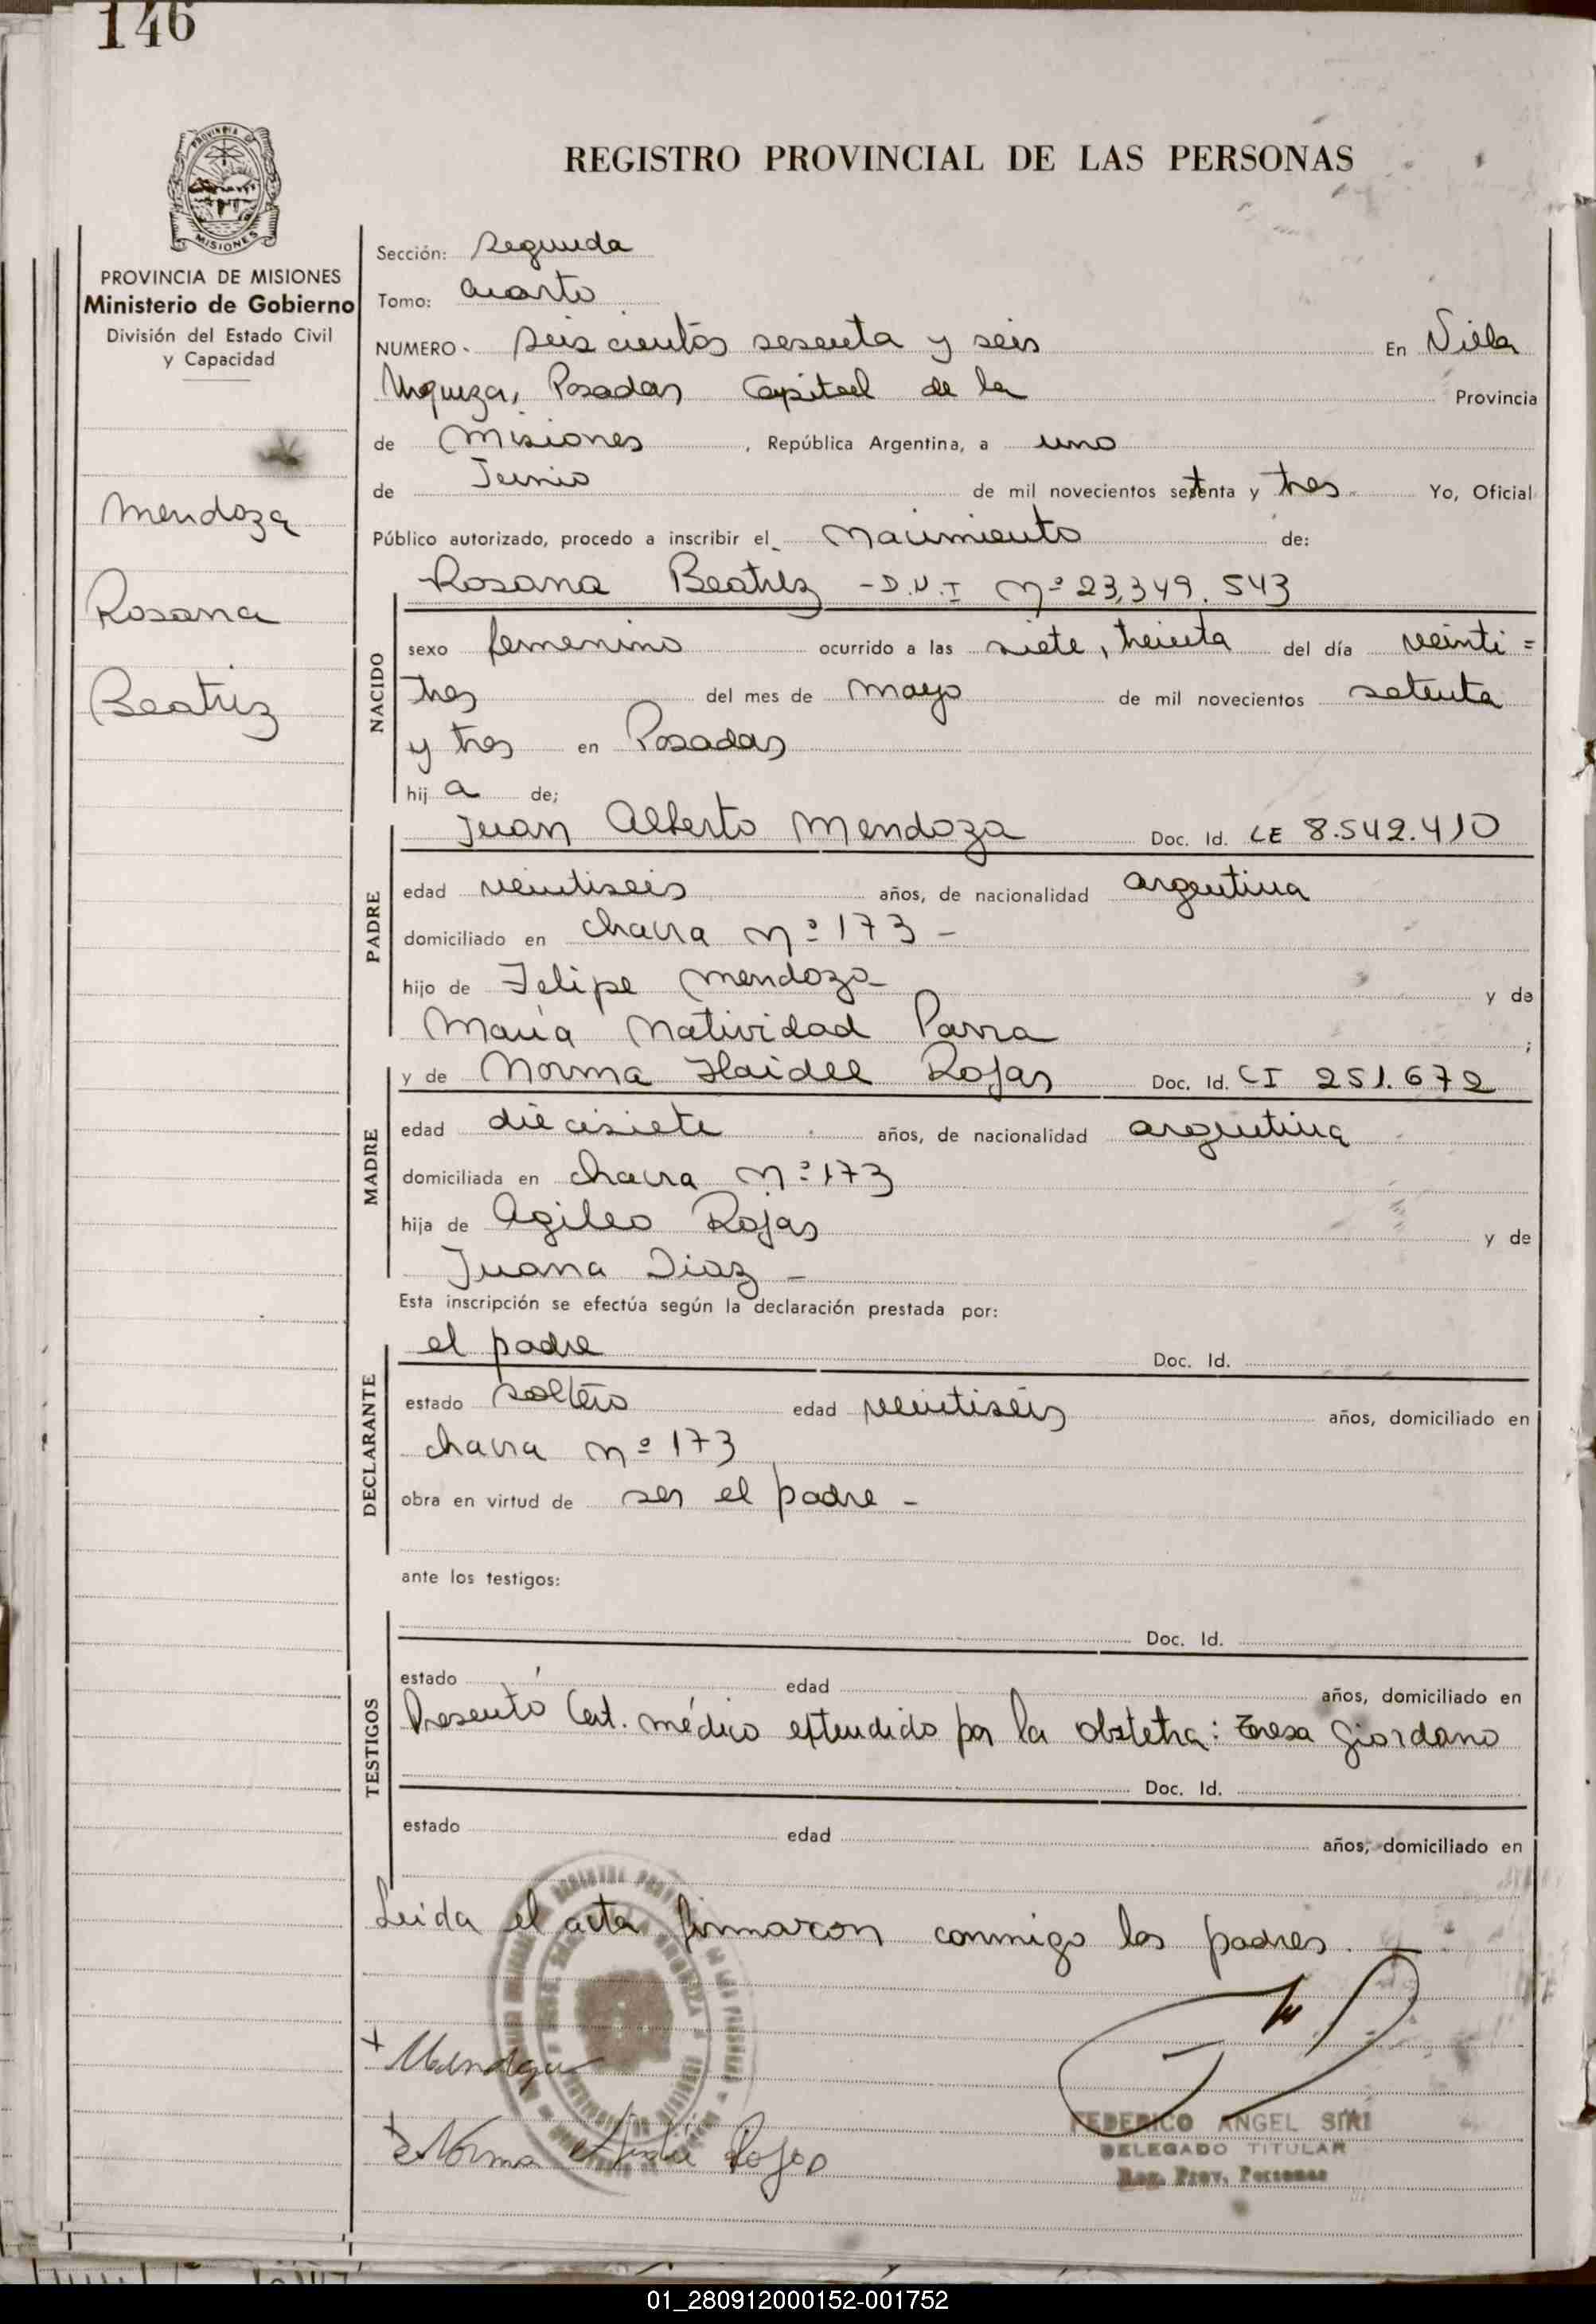 146
PROVINCIA DE
MISIONES
PROVINCIA DE MISIONES
Ministerio de Gobierno
División del Estado Civil
y Capacidad
Mendoza
Rosana
Beatriz
REGISTRO PROVINCIAL DE LAS PERSONAS
Sección: Segunda
Tomo: Cuarto
NUMERO - Seis cientos sesenta y seis En Villa
Urquiza, Posadas Capital de la Provincia
de Misiones , República Argentina, a uno
de Junio de mil novecientos setenta y tres Yo, Oficial
Público autorizado, procedo a inscribir el Nacimiento de:
Rosana Beatriz - D.N.I Nº 23,349.543
NACIDO
sexo femenino ocurrido a las siete, treinta del día veinti =
tres del mes de mayo de mil novecientos setenta
y tres en Posadas
hij a de;
Juan Alberto Mendoza Doc. Id. LE 8.542.410
PADRE
edad veintiseis años, de nacionalidad argentina
domiciliado en chacra Nº 173 -
hijo de Felipe Mendoza y de
María Natividad Parra ;
y de Norma Haidee Rojas Doc. Id. CI 251.672
MADRE
edad diecisiete años, de nacionalidad argentina
domiciliada en chacra Nº 173
hija de Agileo Rojas y de
Juana Diaz -
Esta inscripción se efectúa según la declaración prestada por:
el padre Doc. Id.
DECLARANTE
estado soltero edad veintiseis años, domiciliado en
chacra Nº 173
obra en virtud de ser el padre -
ante los testigos:
Doc. Id.
TESTIGOS
estado edad años, domiciliado en
Presentó Cert. médico extendido por la obstetra: Teresa Giordano
Doc. Id.
estado edad años, domiciliado en
Leida el acta firmaron conmigo los padres.
Norma Rojas
FEDERICO ANGEL SIRI
DELEGADO TITULAR
Reg. Prov. Personas
01_280912000152-001752